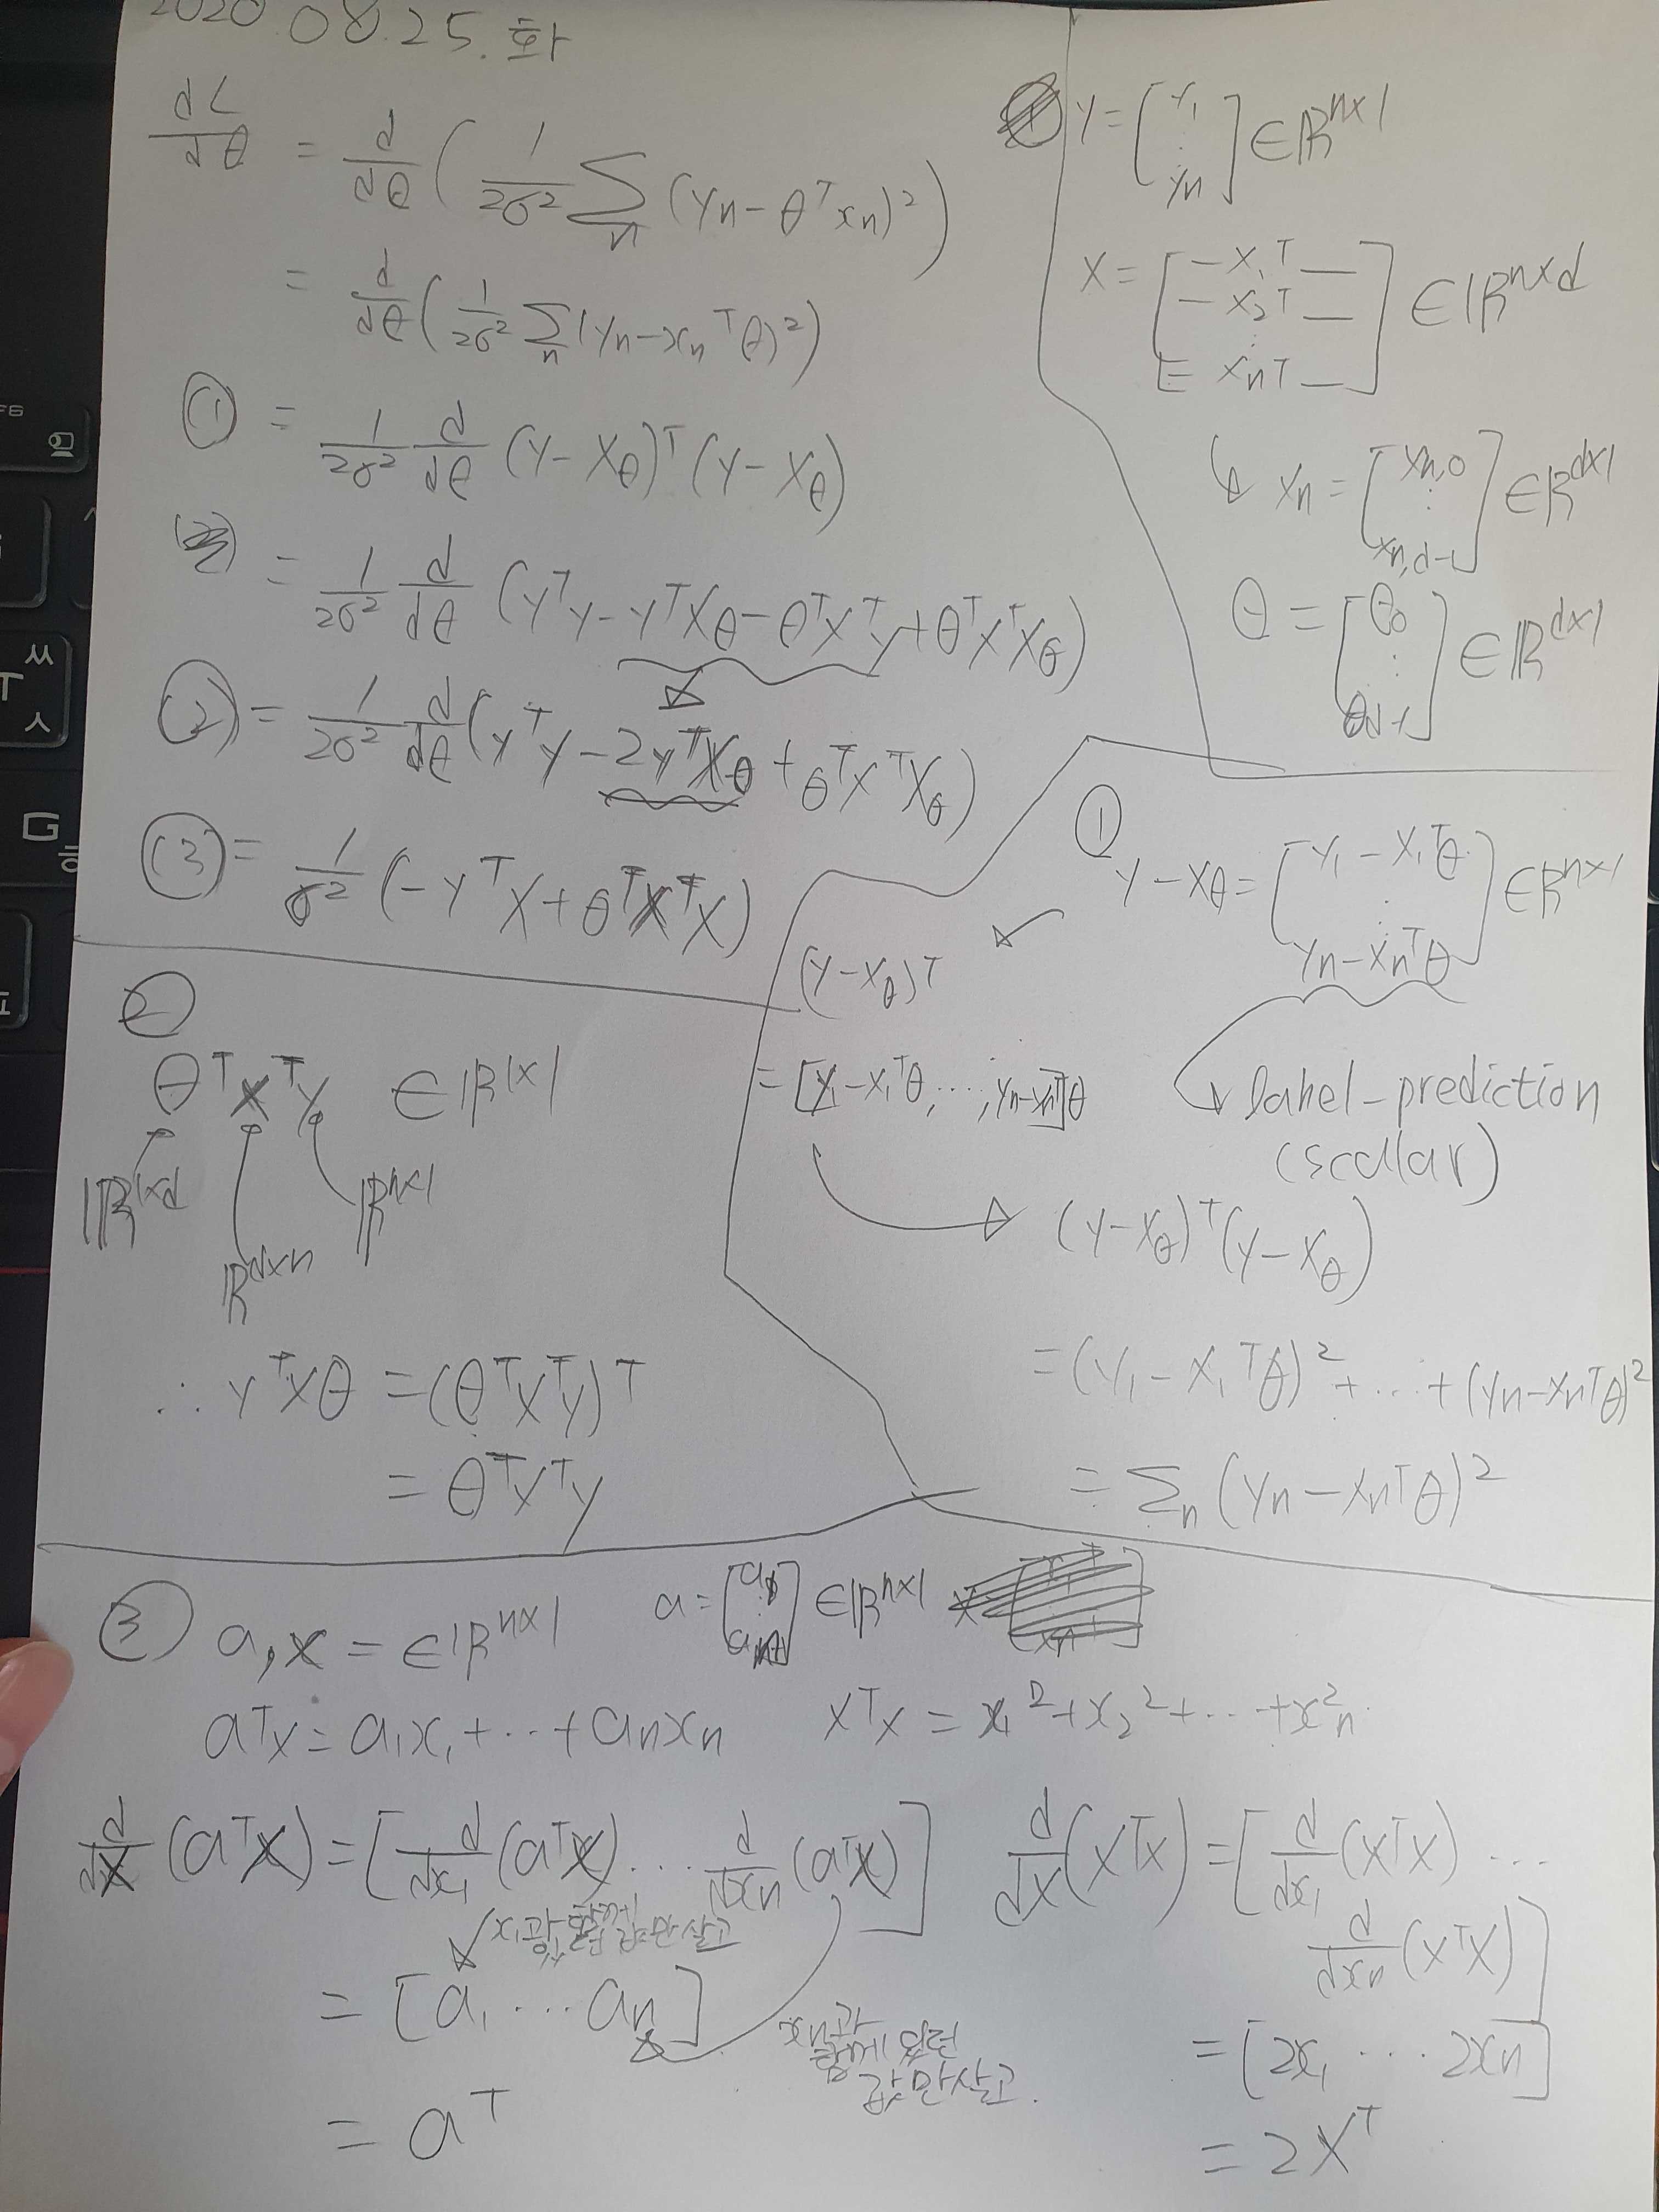 2020.08.25.화
dL/dθ = d/dθ ( 1/2σ² Σn (yn - θᵀxn)² )
= d/dθ ( 1/2σ² Σn (yn - xnᵀθ)² )
① = 1/2σ² d/dθ (y - Xθ)ᵀ (y - Xθ)
= 1/2σ² d/dθ (yᵀy - yᵀXθ - θᵀXᵀy + θᵀXᵀXθ)
(2) = 1/2σ² d/dθ (yᵀy - 2yᵀXθ + θᵀXᵀXθ)
(3) = 1/σ² (-yᵀX + θᵀXᵀX)
y = [y₁ ⋮ yn] ∈ ℝⁿˣ¹
X = [— x₁ᵀ — — x₂ᵀ — ⋮ — xnᵀ —] ∈ ℝⁿˣᵈ
↳ xn = [xn,0 ⋮ xn,d-1] ∈ ℝᵈˣ¹
θ = [θ₀ ⋮ θd-1] ∈ ℝᵈˣ¹
①
y - Xθ = [y₁ - x₁ᵀθ ⋮ yn - xnᵀθ] ∈ ℝⁿˣ¹
label-prediction
(scalar)
(y - Xθ)ᵀ
= [y₁ - x₁ᵀθ, ..., yn - xnᵀθ]
(y - Xθ)ᵀ (y - Xθ)
= (y₁ - x₁ᵀθ)² + ... + (yn - xnᵀθ)²
= Σn (yn - xnᵀθ)²
②
θᵀXᵀy ∈ ℝ¹ˣ¹
ℝ¹ˣᵈ ℝᵈˣⁿ ℝⁿˣ¹
∴ yᵀXθ = (θᵀXᵀy)ᵀ
= θᵀXᵀy
③ a, x = ∈ ℝⁿˣ¹ a = [a₁ ⋮ an] ∈ ℝⁿˣ¹
aᵀx = a₁x₁ + ... + anxn xᵀx = x₁² + x₂² + ... + xn²
d/dx (aᵀx) = [d/dx₁ (aᵀx) ... d/dxn (aᵀx)]
x₁과 함께 값만 살고
= [a₁ ... an]
xn과
함께 있던
값만 살고.
= aᵀ
d/dx (xᵀx) = [d/dx₁ (xᵀx) ...
d/dxn (xᵀx)]
= [2x₁ ... 2xn]
= 2xᵀ